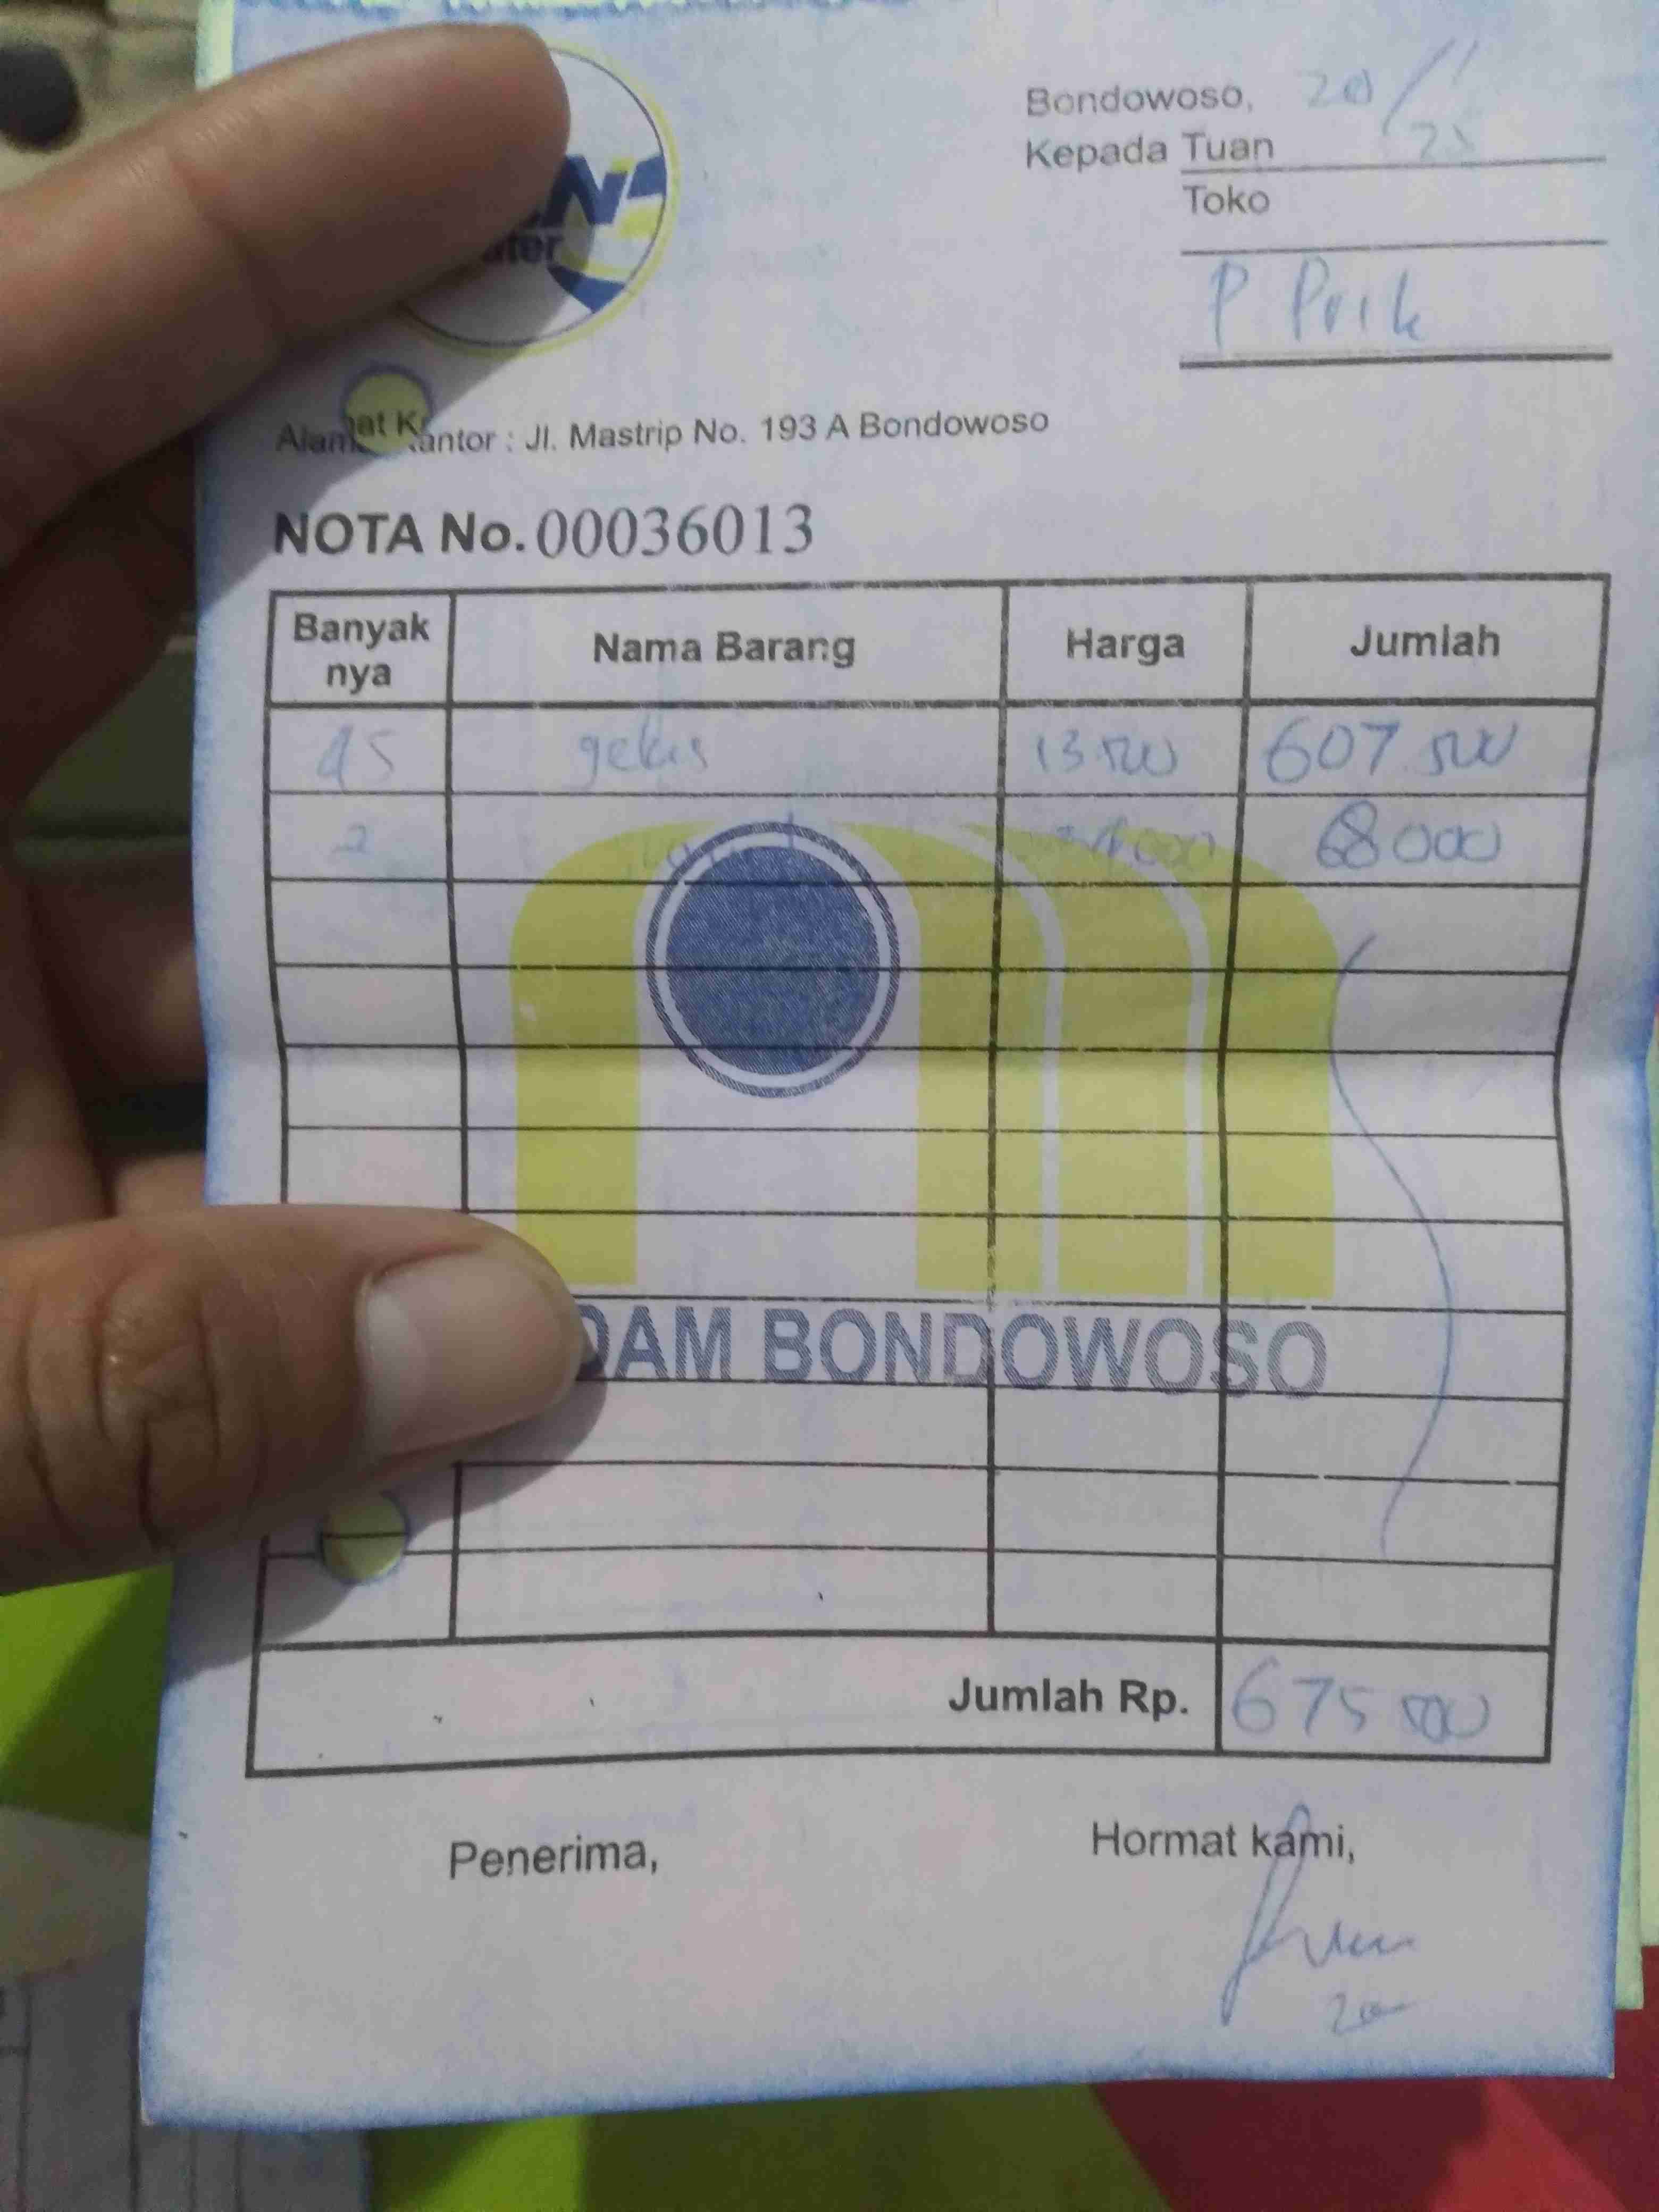 Bondowoso, 20/11
25
Kepada Tuan
Toko
P Prik
Alamat Kantor : Jl. Mastrip No. 193 A Bondowoso
NOTA No. 00036013
Banyak nya Nama Barang Harga Jumlah
45 gelas 13.500 607.500
2 34.000 68000
DAM BONDOWOSO
Jumlah Rp. 675 500
Penerima, Hormat kami,